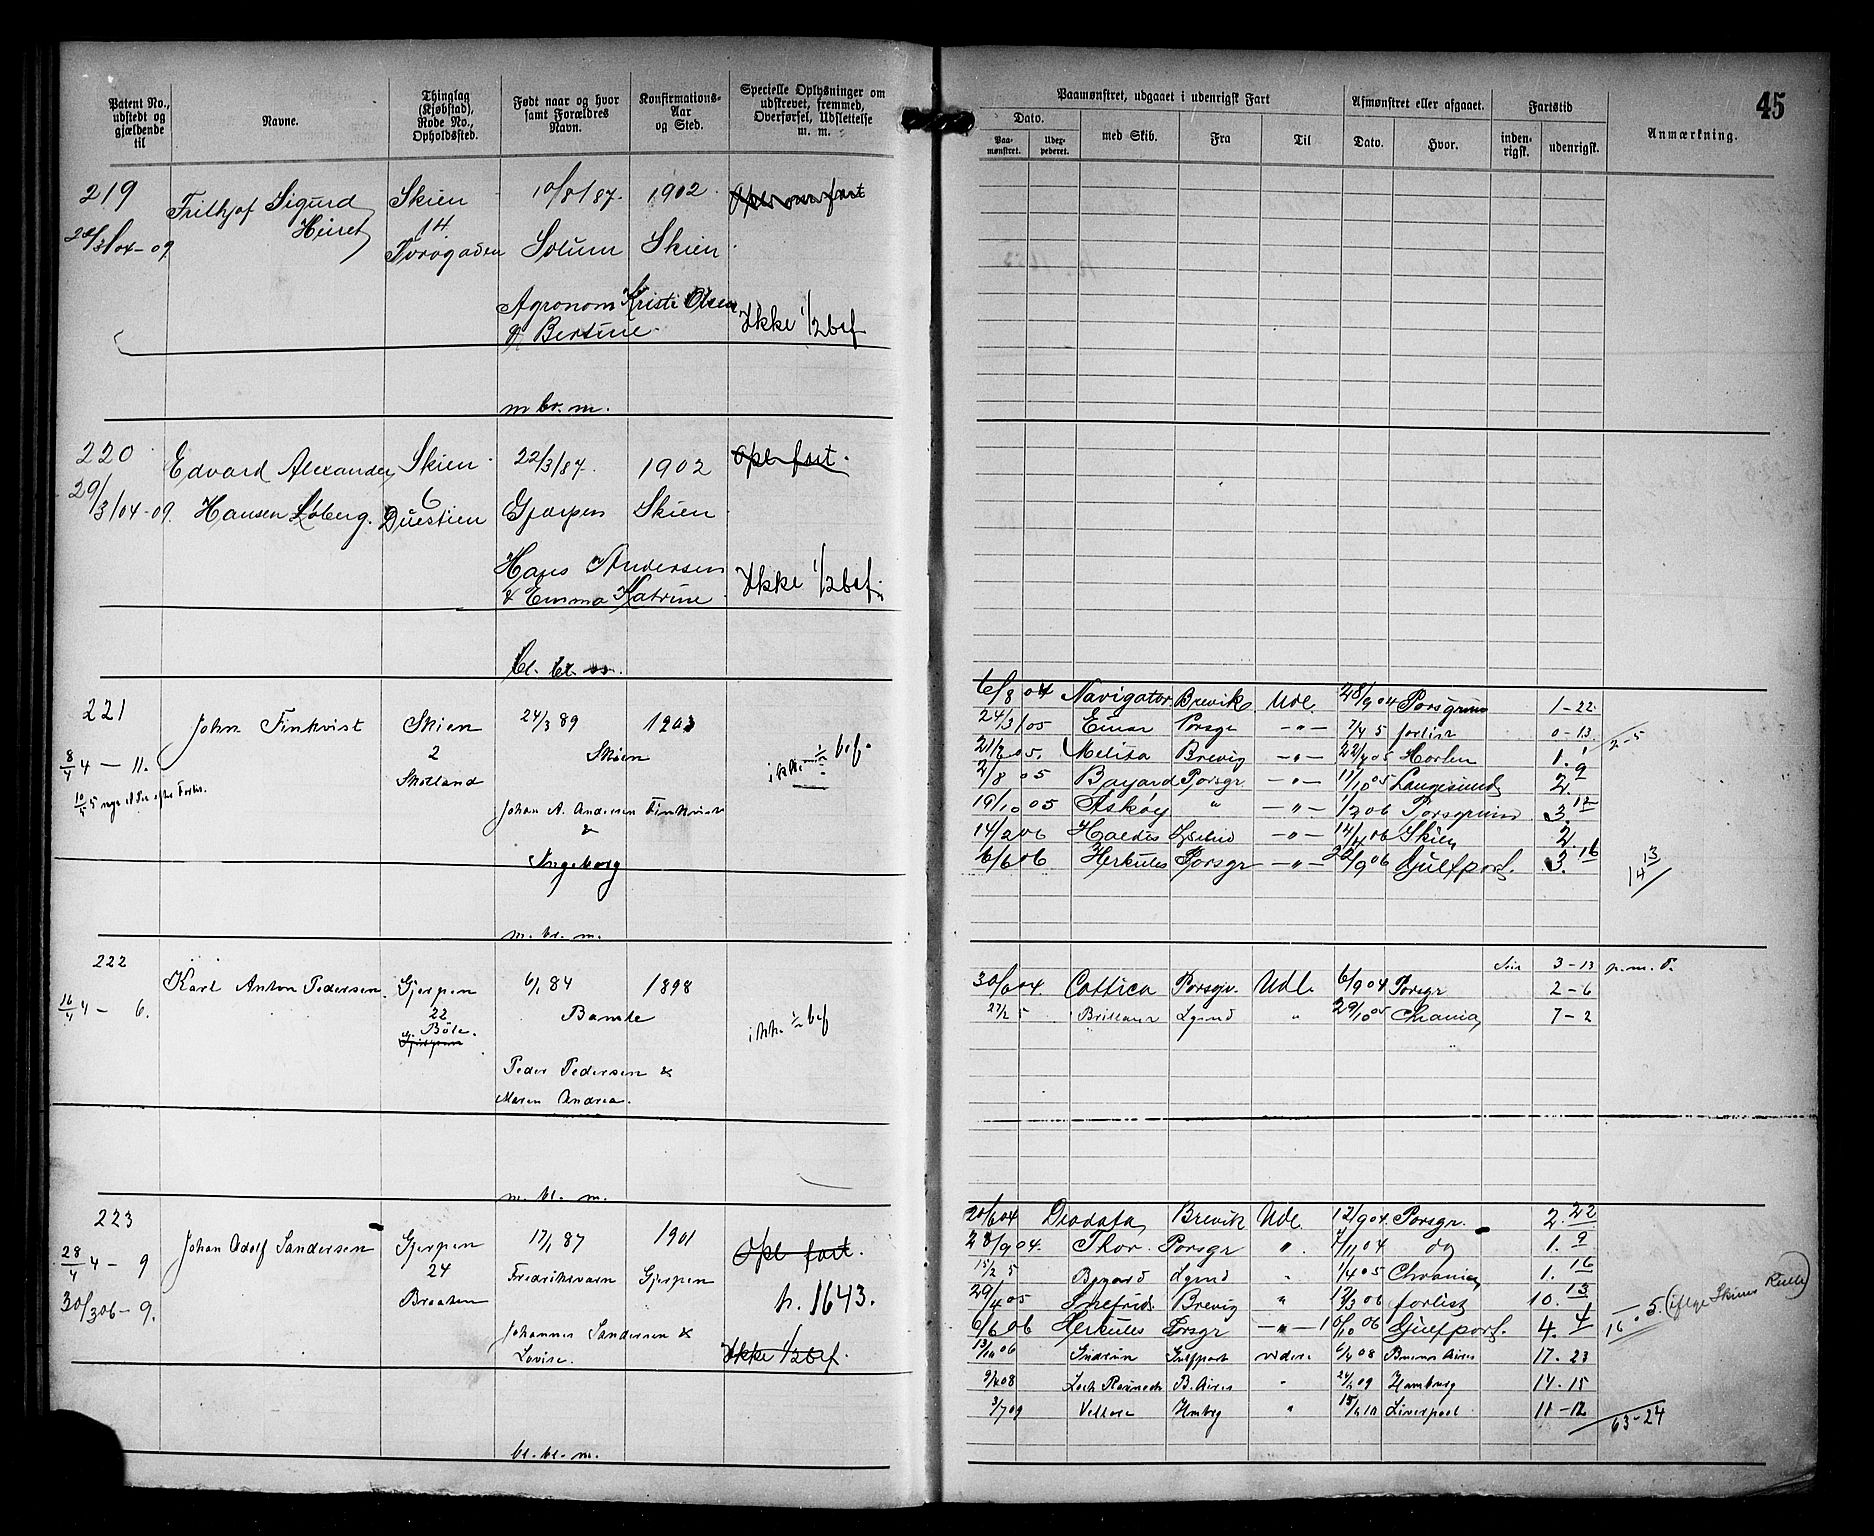 45
Patent No., udstedt og gjældende til
Navne.
Thinglag (Kjøbstad), Rode No., Opholdssted.
Født naar og hvor samt Forældres Navn.
Konfirmations-Aar og Sted.
Specielle Oplysninger om udstrevet, fremmed, Overførsel, Udslettelse m. m.
Paamønstret, udgaaet i udenrigsk Fart
Dato.
Paa-mønstret.
Uder-pederet.
med Skib.
Fra
Til
Afmønstret eller afgaaet.
Dato.
Hvor.
Fartstid
inden-rigsk.
udenrigsk.
Anmærkning.
219
Frithjof Sigurd
Skien
10/8/87.
1902.
14
Solum
Skien
Agronom Kristi Olsen
& Bertine
Ikke 1/2 bef
m br. m.
220
Edvard Alexander
Skien
22/3/87.
1902
Opl fart.
29/3/04-09.
Hansen Løberg.
6
Duestien
Gjerpen
Skien
Hans Andersen
& Emma Katrine
Ikke 1/2 bef.
bl. bl. m.
221
John Finkvist
Skien
24/3 89
1903
2
Skotland
Skien
8/4 4 - 11.
ikke 1/2 bef.
Johan A. Andersen Finkvist
&
Ingeborg
m. br. m.
6/8 04 Navigator Brevik Udl. 28/9 04 Porsgrund 1-22
24/3/05 Einar Porsgr -"- 7/4 5 forlist 0-13
2-5
Melita Brevig -"- 1. 1
2/8 05 Bayard Porsgr -"- 11/10 05 Langesund 2. 9
19/10 05 Askøy " -"- 1/2 06 Porsgrund 3. 12
14/2 06 -"- 14/4 06 Skien 2.
6/6 06 Herkules Porsgr -"- 22/9 06 Gulfport. 3. 16
14 13
222
Karl Anton Pedersen.
Gjerpen
6/1 84
1898
22
Bøle.
Gjerpen
Bamle
16/4 4 - 6.
ikke 1/2 bef
Peder Pedersen &
Maren Andrea.
m. bl. m.
3-13 p.m.T.
30/6 04. Cottica Porsgr. Udl. 6/9 04 Porsgr 2-6
27/2 5 Lgsund " 29/10 05 Chania 7-2
223
Johan Adolf Sandersen
Gjerpen
17/1 87
1901
Opl fart.
24
Braaten
Fredriksværn
Gjerpen
28/4 4 - 9
30/3 06 - 9.
n. 1643.
Johannes Sandersen &
Lovise.
Ikke 1/2 bef.
bl. bl. m.
20/6 04 Deodata Brevik Udl. 12/9 04. Porsgr. 2. 22
28/9 04. Thor. Porsgr ". 7/11 04 do 1. 9
15/2 5 Bayard Lgsund " 1/4 05 Chrania 1. 16
29/4 05 Snefrid. Brevig " 12/3 06 forlist 10. 13
16 - 5. (iflge Skiens Rulle)
6/6 06 Herkules Porsgr -"- 10/10 06 Gulfport. 4. 4
13/10 06 Gudrun Gulfport videre 6/4 08 Buenos Aires 17. 23
9/4 08 Loch Rannoch B. Aires " 24/6 09 Hamburg 14. 15
3/7 09 Vellore Hmbrg " 15/6 10 Liverpool 11-12
63-24